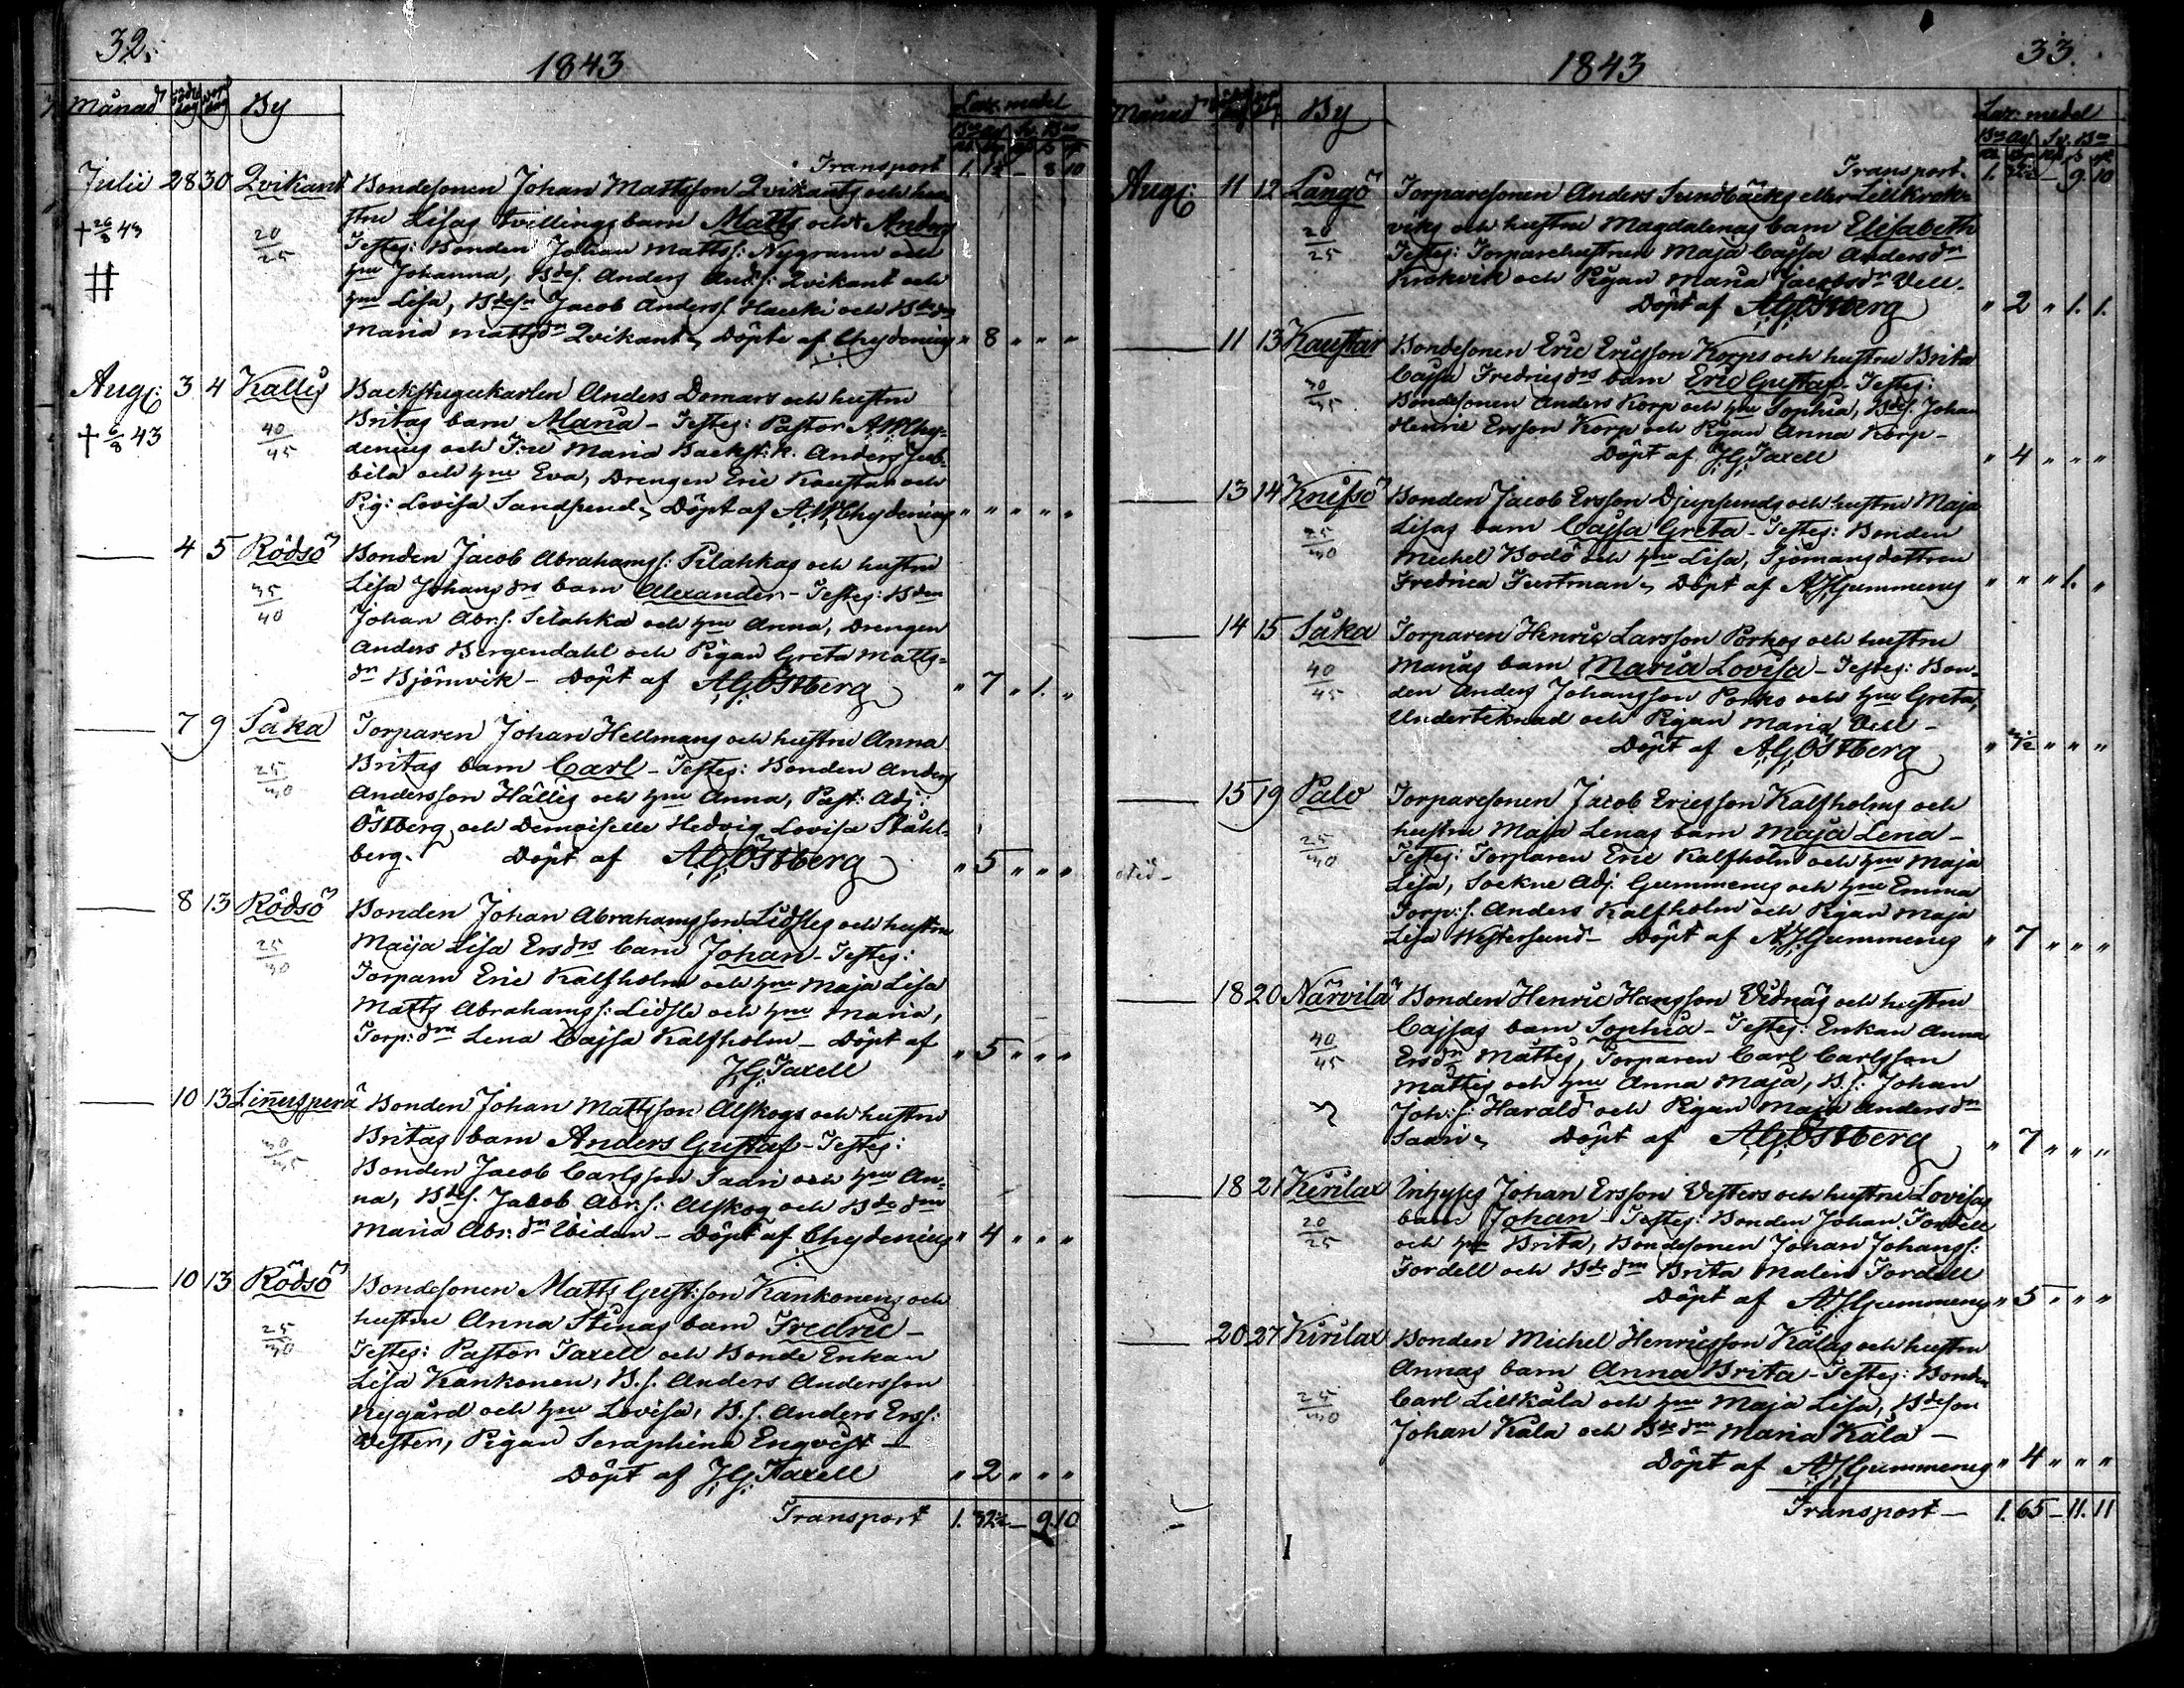 32.
1843
Månad Född dag Döpt dag By Lax. medel
Transport 1. 1½ – 8 10
Julii 28 30 Qvikant Bondesonen Johan Mattsson Qvikants och hu-
stru Lisas tvillingsbarn Matts och + Anders
+ 26/8 43 20/25 Testes: Bonden Johan Matts s: Nygrann och
# hru Johanna, Bdes. Anders And.s: Qvikant och
hru Lisa, Bdesn Jacob Anders s. Haucki och Bde dn
Maria Mattsdn Qvikant, Döpte af Chydenius " 8 " " "
Aug: 3 4 Kallis Backstugukarlen Anders Domars och hustru
+ 6/8 43 40/45 Britas barn Maria – Testes: Pastor A.W. Chy-
denius och Fru Maria Backst: k. Anders Jub-
bila och hru Eva, Drengen Eric Kaustar och
Pig: Lovisa Sandsund, Döpt af A.W. Chydenius " " " " "
— 4 5 Rödsö Bonden Jacob Abrahams s: Pilahkas och hustru
35/40 Lisa Johans drs barn Alexander – Testes: Bden
Johan Abr. s. Pilahka och hru Anna, Drengen
Anders Bergendahl och Pigan Greta Matts-
dr Björnvik – Döpt af A.G. Östberg " 7 " 1. "
— 7 9 Såka Torparen Johan Hellmans och hustru Anna
25/30 Britas barn Carl – Testes: Bonden Anders
Andersson Hällis och hru Anna, Past: Adj:
Östberg och Demoiselle Hedvig Lovisa Ståhl-
berg. Döpt af A.G. Östberg " 5 " " "
— 8 13 Rödsö Bonden Johan Abrahamsson Lidsles och hustru
25/30 Maija Lisa Ers drs barn Johan – Testes:
Torparn Eric Kalfholm och hru Maja Lisa
Matts Abrahams s: Lidsle och hru Maria,
Torp: drn Lena Cajsa Kalfholm – Döpt af
J.G. Taxell " 5 " " "
— 10 13 Linnusperä Bonden Johan Mattsson Alskogs och hustru
30/35 Britas barn Anders Gustaf – Testes:
Bonden Jacob Carlsson Saari och hru An-
na, Bdes. Jacob Abr. s: Alskog och Bde drn
Maria Abr: dr Abidan – Döpt af Chydenius " 4 " " "
— 10 13 Rödsö Bondesonen Matts Gust:son Kankonens och
25/30 hustru Anna Stinas barn Fredric –
Testes: Pastor Taxell och Bonde Enkan
Lisa Kankonen, B.s. Anders Andersson
Nygård och hru Lovisa, B.s. Anders Ers s:
Vester, Pigan Seraphina Enqvist –
Döpt af J.G. Taxell " 2 " " "
Transport 1. 32½ – 9. 10
33.
1843
Månad By Lax. medel
Transport. 1. 32½ – 9. 10
Aug: 11 12 Långö Torparesonen Anders Sundbäcks eller Lillkrok-
20/25 viks och hustru Magdalenas barn Elisabeth
Testes: Torparehustrun Maja Cajsa Andersdn
Krokvik och Pigan Maria Jacobsdn Vell.
Döpt af A.G. Östberg " 2 " 1. 1.
— 11 13 Kaustar Bondesonen Eric Ericsson Korps och hustru Brita
30/35 Cajsa Fredricsdrs barn Eric Gustaf – Testes:
Bondesonen Anders Korp och hru Sophia, Bdes. Johan
Henric Ersson Korp och Pigan Anna Korp –
Döpt af J.G. Taxell " 4 " " "
— 13 14 Knifsö Bonden Jacob Ersson Djupsunds och hustru Maja
25/30 Lisas barn Cajsa Greta – Testes: Bonden
Michel Bodö och hru Lisa, Sjömansdottren
Fredrica Furtman, Döpt af A.J. Gummerus " " " 1. "
— 14 15 Såka Torparen Henric Larsson Porkos och hustru
40/45 Marias barn Maria Lovisa – Testes: Bon-
den Anders Johansson Porko och hru Greta,
Undertecknad och Pigan Maria Vell –
Döpt af A.G. Östberg " 3½ " " "
— 15 19 Palo Torparesonen Jacob Ericsson Kalfholms och
25/30 hustru Maja Lenas barn Maja Lena –
Testes: Torparen Eric Kalfholm och hru Maja
Lisa, Sockne Adj. Gummerus och hru Emma
Torp: s. Anders Kalfholm och Pigan Maja
Lisa Westersund – Döpt af A.J. Gummerus " 7 " " "
— 18 20 Närvilä Bonden Henric Hansson Vidnäs och hustru
40/45 Cajsas barn Sophia – Testes: Enkan Anna
Ersdr Mattis, Torparen Carl Carlsson
Mattis och hru Anna Maja, B.s: Johan
Joh: s: Harald och Pigan Maja Andersdn
Saari, Döpt af A.G. Östberg " 7 " " "
— 18 21 Kirilax Inhyses Johan Ersson Vesters och hustru Lovisas
20/25 barn Johan – Testes: Bonden Johan Fordell
och hru Brita, Bondesonen Johan Johans s:
Fordell och Bde drn Brita Malin Fordell
Döpt af A.J. Gummerus " 5 " " "
— 20 27 Kirilax Bonden Michel Henricsson Kålas och hustru
25/30 Annas barn Anna Brita – Testes: Bonden
Carl Lillkåla och hru Maja Lisa, Bdeson
Johan Kåla och Bde drn Maria Kåla –
Döpt af A.J. Gummerus " 4 " " "
Transport – 1. 65 – 11. 11